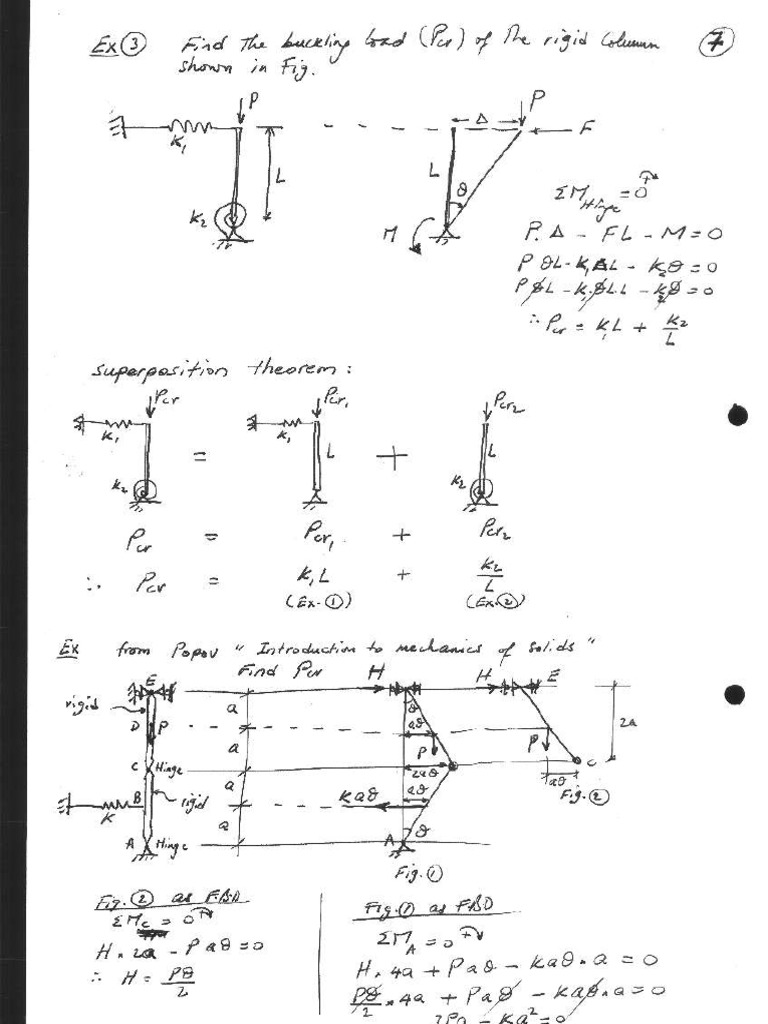 Ex ③ Find the buckling load (Pcr) of the rigid column ⑦
shown in Fig.
P
K₁
L
K₂
Δ
P
F
L
θ
M
ΣM Hinge = 0
P.Δ - FL - M = 0
P θL - K₁ΔL - K₂θ = 0
P θL - K₁θL.L - K₂θ = 0
∴ Pcr = K₁L + K₂/L
superposition theorem:
Pcr
Pcr₁
Pcr₂
K₁
K₂
=
K₁
L
+
K₂
L
Pcr = Pcr₁ + Pcr₂
∴ Pcr = K₁L + K₂/L
(Ex.①) (Ex.②)
Ex from Popov "Introduction to mechanics of solids"
Find Pcr
E
rigid
D
P
C Hinge
B
rigid
K
A Hinge
a
a
a
a
H
θ
aθ
P
2aθ
aθ
Kaθ
θ
A
Fig.①
H
E
P
C
aθ
2a
Fig.②
Fig.② as FBD
ΣMc = 0
H × 2a - P aθ = 0
∴ H = Pθ/2
Fig.① as FBD
ΣM A = 0
H × 4a + P aθ - Kaθ × a = 0
Pθ/2 × 4a + P aθ - Kaθ × a = 0
- Ka² = 0